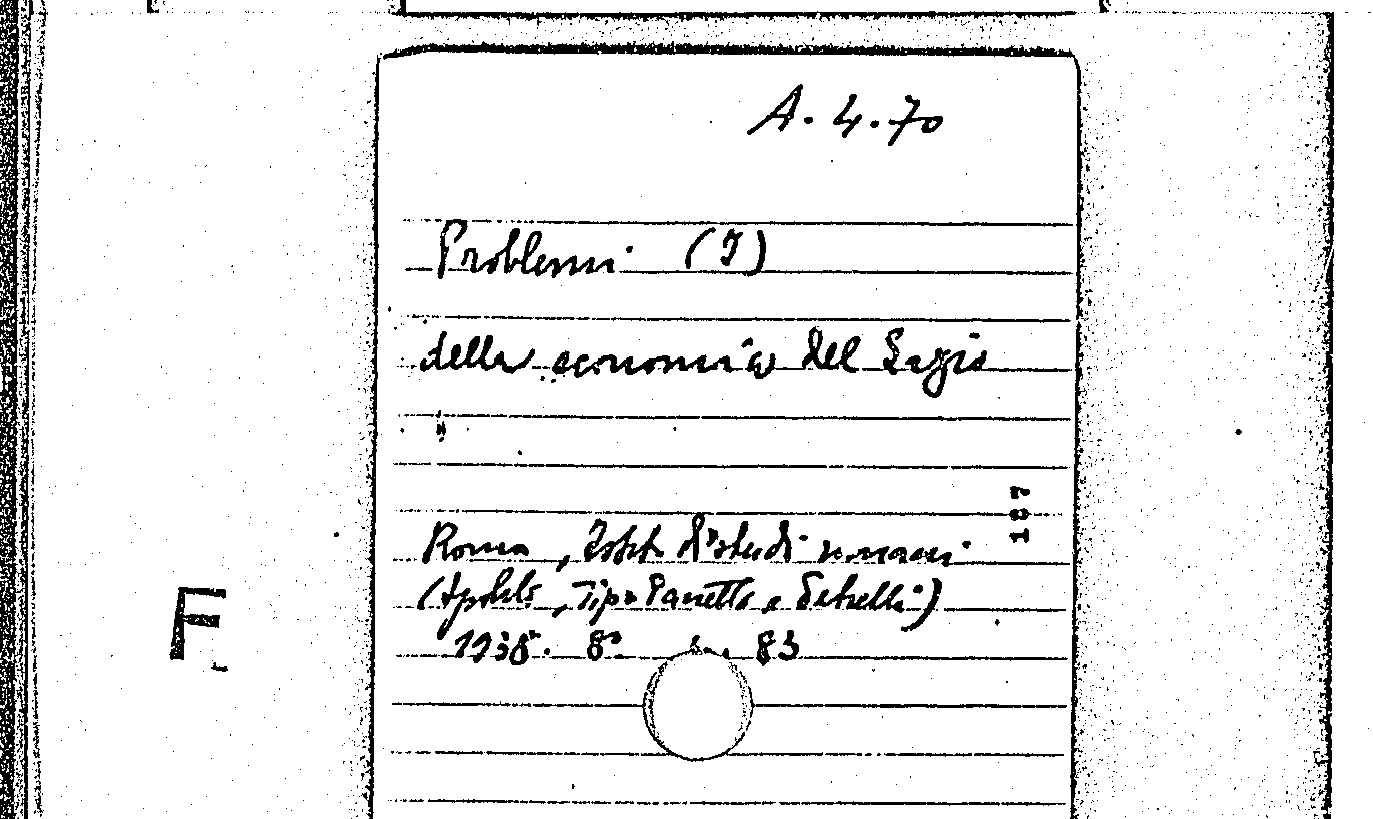 A. 4. 70
Problemi (I)
della economia del Lazio
187
Roma, Istit. di studi romani
(Spoleto, Tip. Panetto e Petrelli)
1938. 8° 83
F